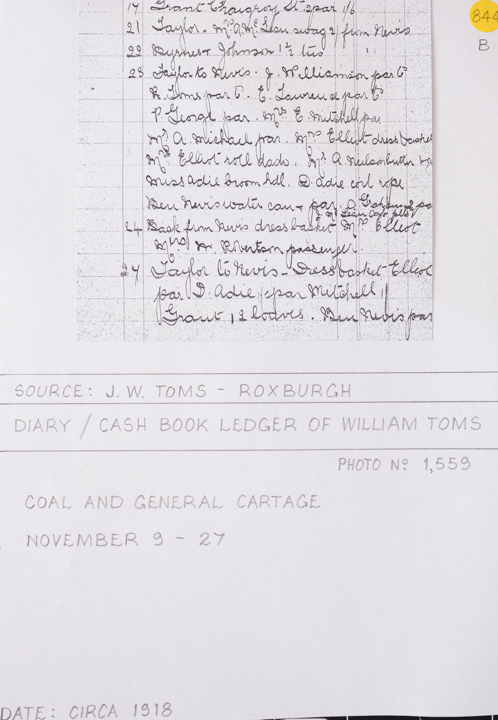 17 Grant Craigroy St par 1/6
21 Taylor. Mrs A McLean swag 2/ from Nevis
22 Byrnes + Johnson 1½ tns
23 Taylor to Nevis. J. Williamson par
R. Toms par. E. Laurence par
P George par. Mrs E Mitchell par
Mrs A. Michael par. Mrs Elliot dress basket
Mrs Elliot roll dado. Mrs A
Miss Adie broom hdl. D. Adie coil rope
Ben Nevis water can + par.
24 Back from Nevis dress basket Mrs Elliot
Mrs M. Robertson passenger
27 Taylor to Nevis - Dress basket Elliot
par D. Adie par Mitchell
Grant 12 loaves. Ben Nevis par
844
B
SOURCE: J. W. TOMS - ROXBURGH
DIARY / CASH BOOK LEDGER OF WILLIAM TOMS
PHOTO Nº 1,559
COAL AND GENERAL CARTAGE
NOVEMBER 9 - 27
DATE: CIRCA 1918